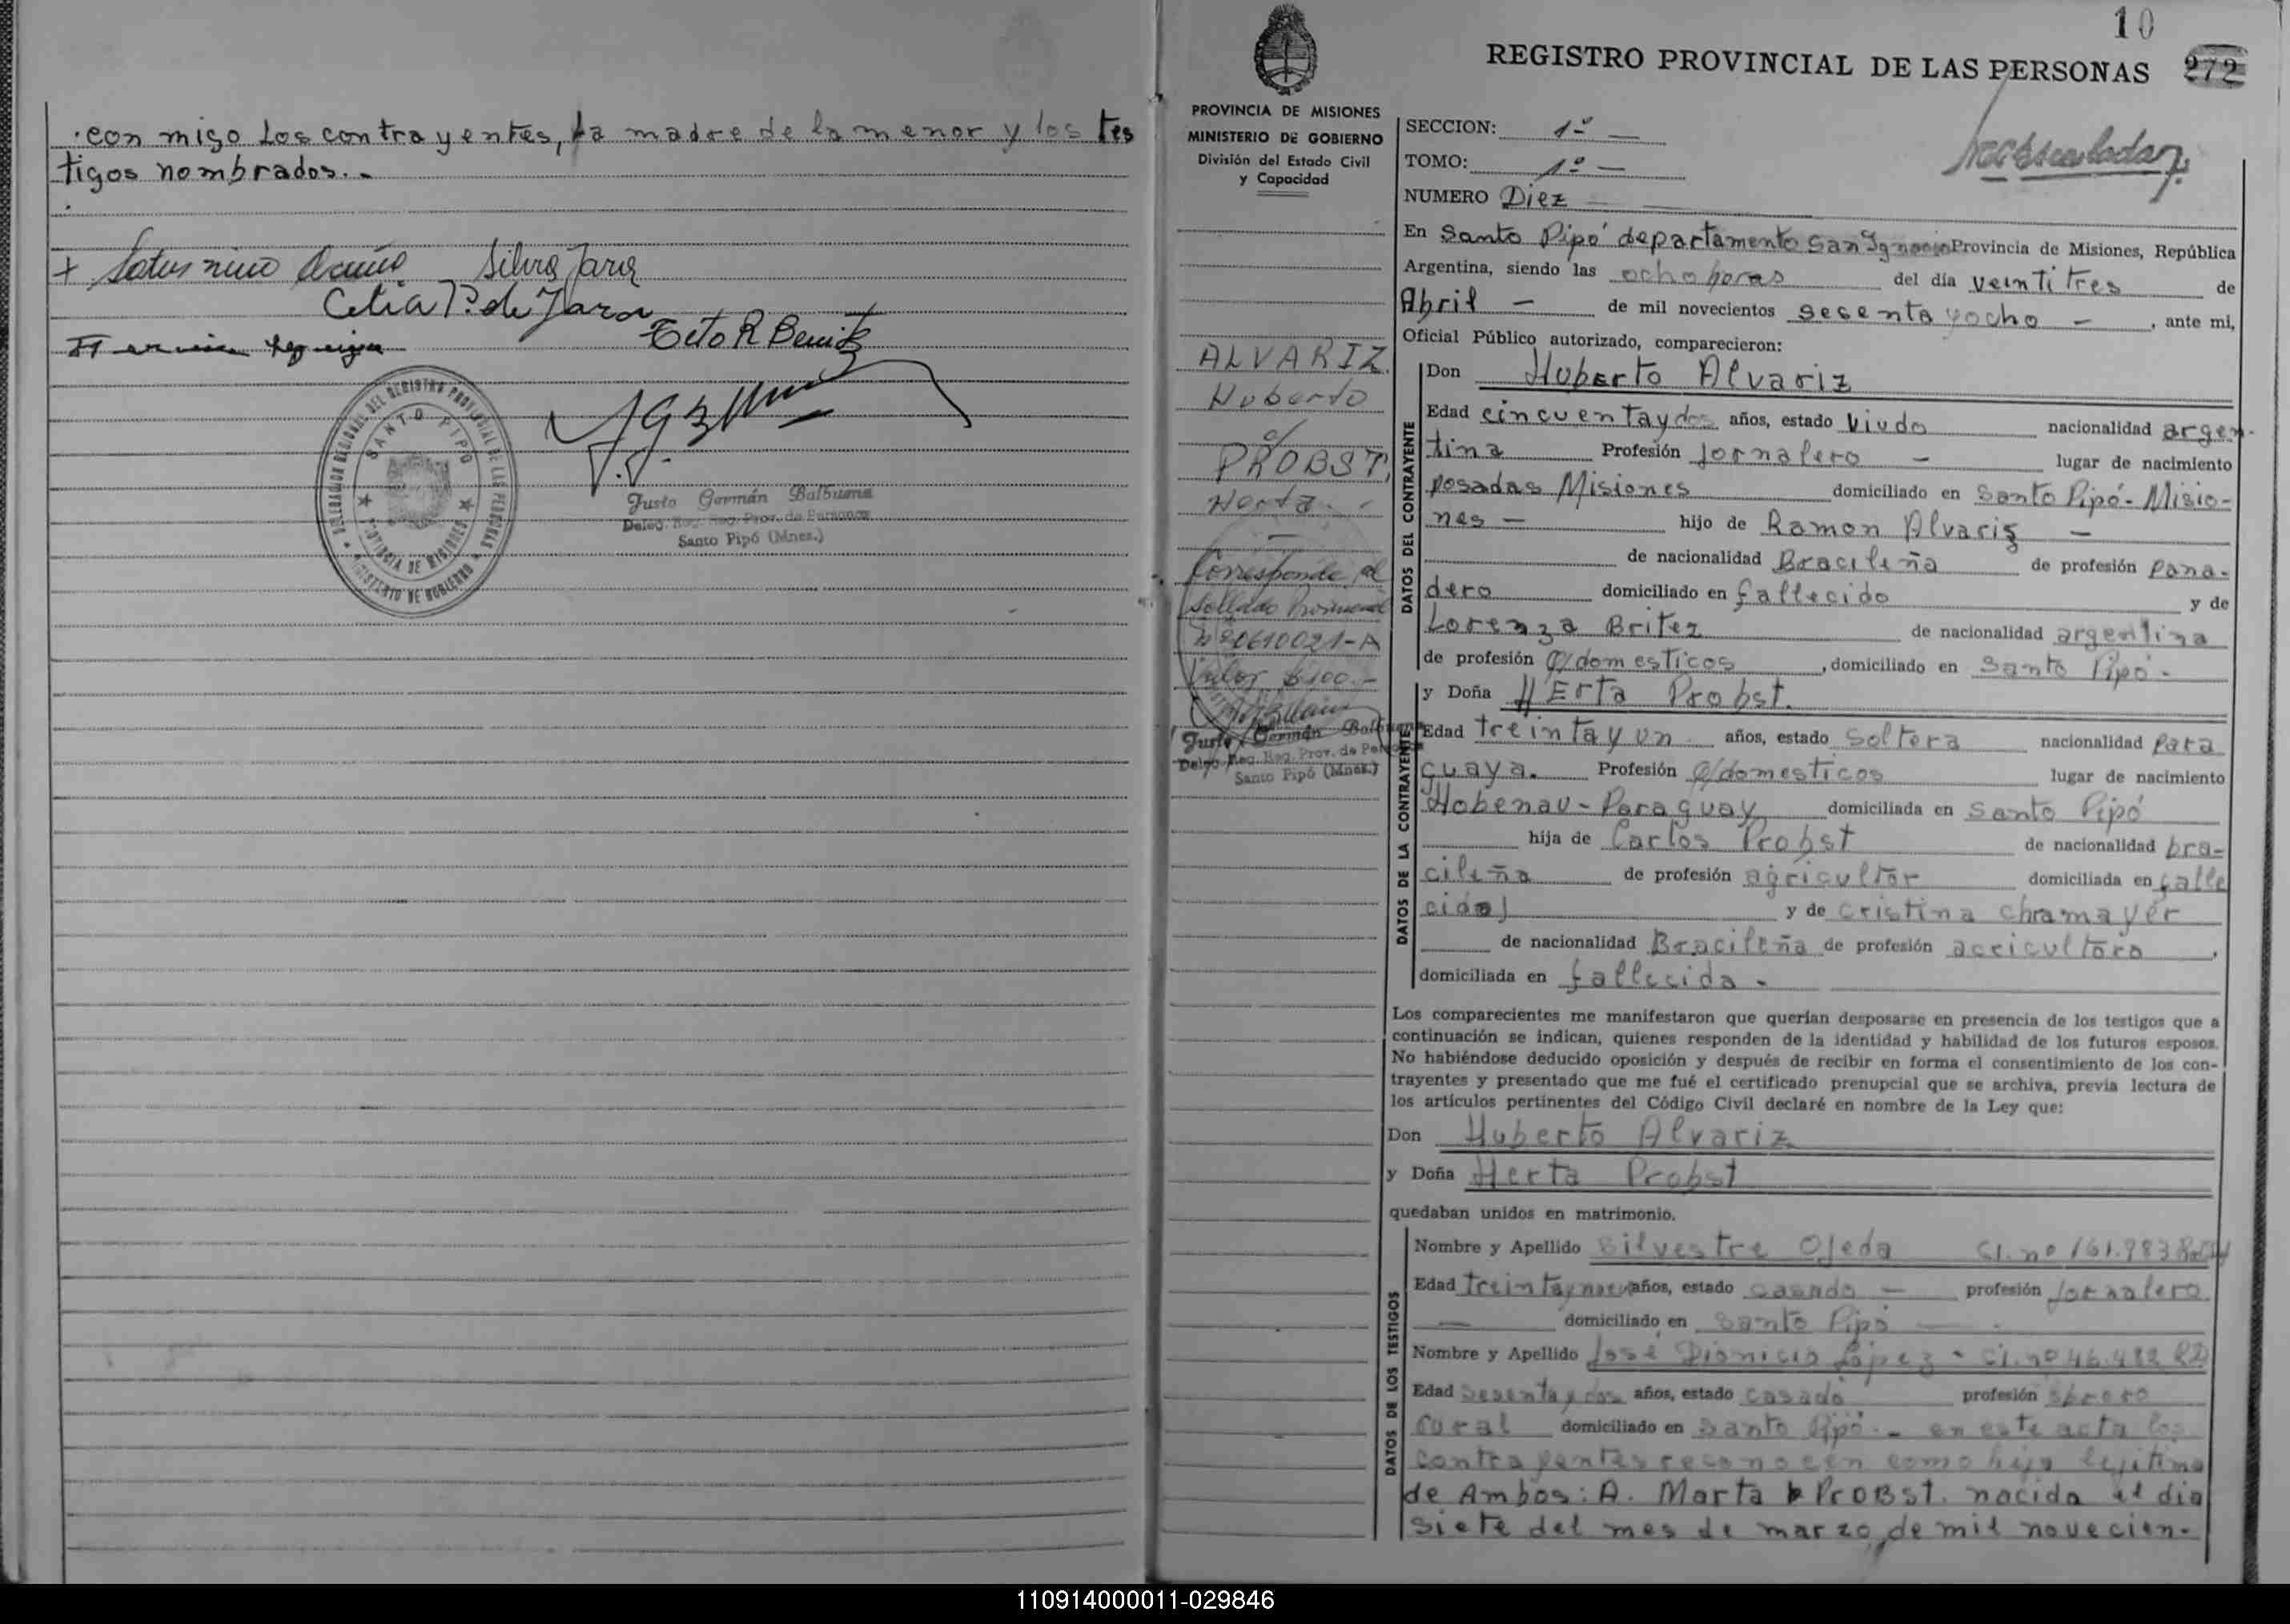 con migo Los contrayentes, la madre de la menor y los tes
tigos nombrados.-
Silvia Jara
Celia P. de Jara
Tito R Benitz
SANTO PIPO
PROVINCIA DE MISIONES
MINISTERIO DE GOBIERNO
Justo Germán Balbuena
Deleg. Reg. Reg. Prov. de Personas
Santo Pipó (Mnes.)
10
REGISTRO PROVINCIAL DE LAS PERSONAS 272
PROVINCIA DE MISIONES
MINISTERIO DE GOBIERNO
División del Estado Civil
y Capacidad
ALVARIZ
Huberto
c/
PROBST,
Herta.-
Corresponde al
Sellado Provincial
Nº 20610021-A
Valor $ 100.-
Justo Germán Balbuena
Deleg. Reg. Reg. Prov. de Personas
Santo Pipó (Mnes.)
SECCION: 1º —
TOMO: 1º —
NUMERO Diez
En Santo Pipó departamento San Ignacio Provincia de Misiones, República
Argentina, siendo las ocho horas del día veinti tres de
Abril — de mil novecientos sesenta y ocho — , ante mi,
Oficial Público autorizado, comparecieron:
DATOS DEL CONTRAYENTE
Don Huberto Alvariz
Edad cincuenta y dos años, estado Viudo nacionalidad argen-
tina Profesión Jornalero — lugar de nacimiento
posadas Misiones domiciliado en Santo Pipó-Misio-
nes — hijo de Ramon Alvariz —
de nacionalidad Bracileña de profesión pana-
dero domiciliado en fallecido y de
Lorenza Britez de nacionalidad argentina
de profesión Q/domesticos, domiciliado en Santo Pipó-
DATOS DE LA CONTRAYENTE
y Doña HErta Probst.
Edad treinta y un años, estado Soltera nacionalidad para
guaya. Profesión Q/domesticos lugar de nacimiento
Hobenau-Paraguay domiciliada en Santo Pipó
hija de Carlos Probst de nacionalidad bra-
cileña de profesión agricultor domiciliada en falle
cido y de cristina chramayer
de nacionalidad Bracileña de profesión acricultora,
domiciliada en fallecida -
Los comparecientes me manifestaron que querían desposarse en presencia de los testigos que a
continuación se indican, quienes responden de la identidad y habilidad de los futuros esposos.
No habiéndose deducido oposición y después de recibir en forma el consentimiento de los con-
trayentes y presentado que me fué el certificado prenupcial que se archiva, previa lectura de
los artículos pertinentes del Código Civil declaré en nombre de la Ley que:
Don Huberto Alvariz
y Doña Herta Probst
quedaban unidos en matrimonio.
DATOS DE LOS TESTIGOS
Nombre y Apellido Silvestre Ojeda CI. nº 161.983
Edad treinta y nueve años, estado casado — profesión Jornalero
— domiciliado en Santo Pipó —
Nombre y Apellido José Dionicio López - CI. nº 46.482
Edad sesenta y dos años, estado casado profesión obrero
rural domiciliado en Santo Pipó.- en este acta los
contrayentes reconocen como hija lejitima
de Ambos: A. Marta PROBSt. nacida el dia
siete del mes de marzo, de mil novecien-
110914000011-029846